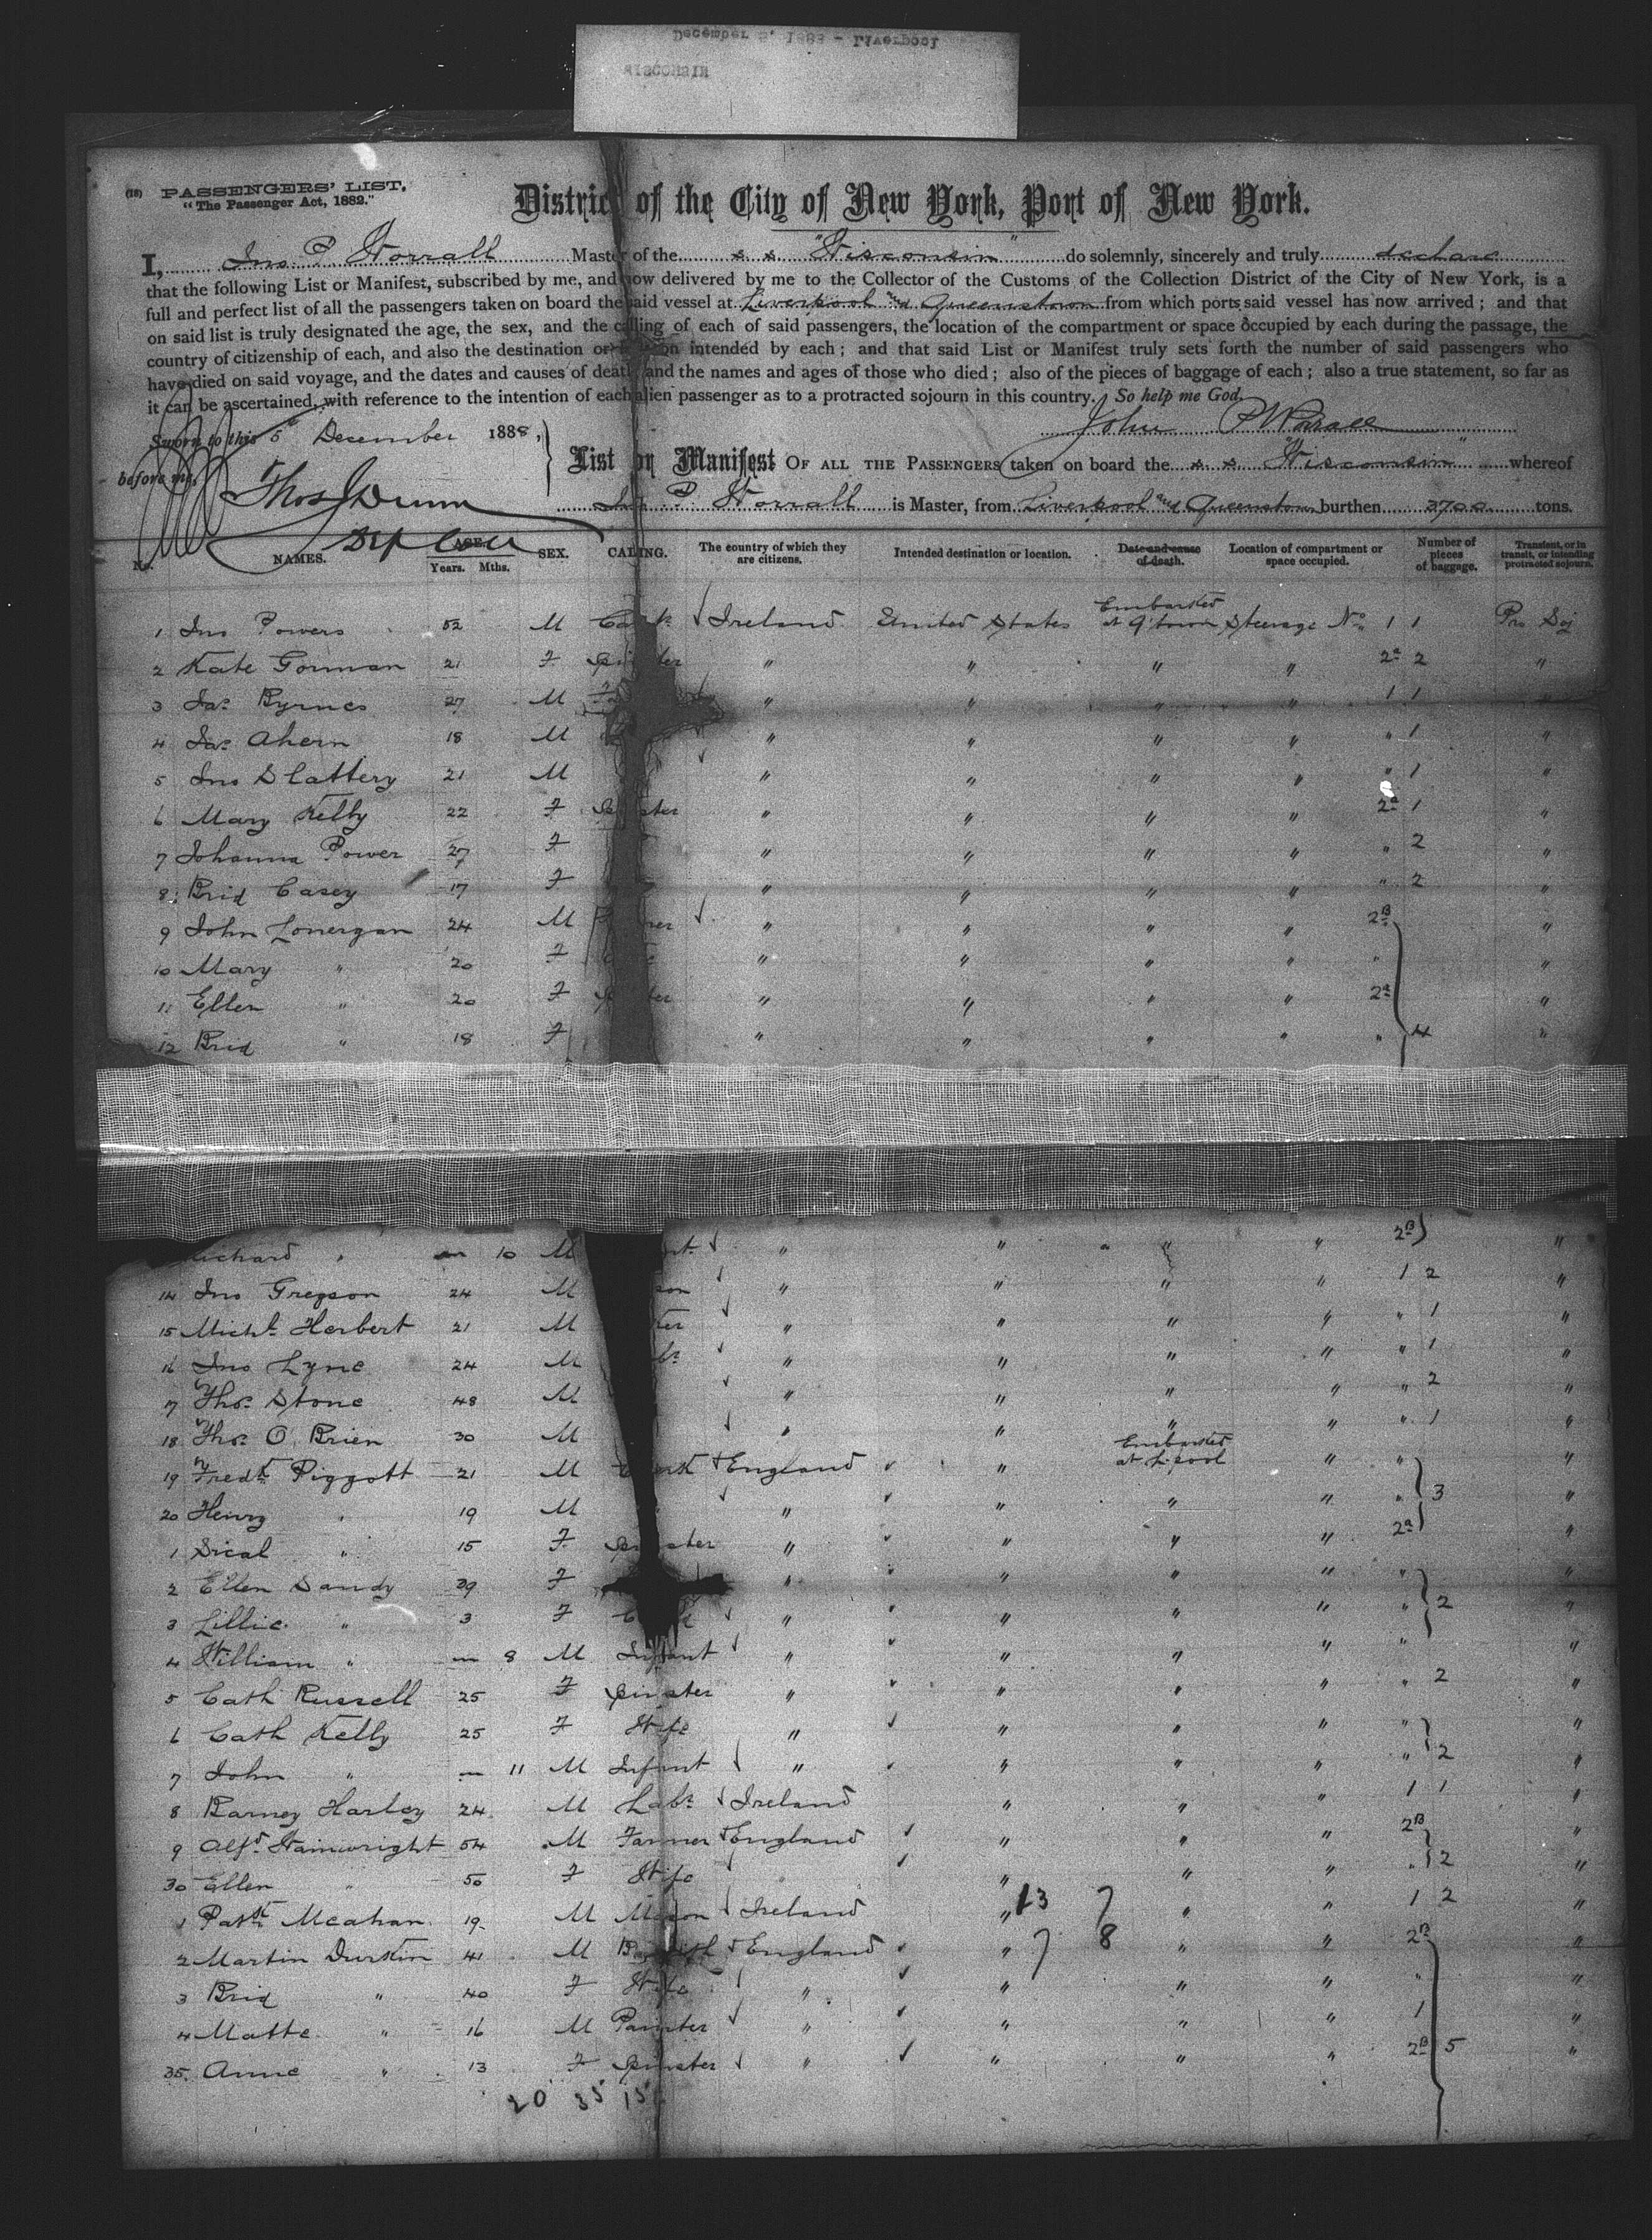 December 5, 1888 - Liverpool
WISCONSIN
(18) PASSENGERS' LIST.
"The Passenger Act, 1882."
District of the City of New York, Port of New York.
I, Jno. P Worrall Master of the s s "Wisconsin" do solemnly, sincerely and truly declare
that the following List or Manifest, subscribed by me, and now delivered by me to the Collector of the Customs of the Collection District of the City of New York, is a
full and perfect list of all the passengers taken on board the said vessel at Liverpool and Queenstown from which ports said vessel has now arrived; and that
on said list is truly designated the age, the sex, and the calling of each of said passengers, the location of the compartment or space occupied by each during the passage, the
country of citizenship of each, and also the destination or intended by each; and that said List or Manifest truly sets forth the number of said passengers who
have died on said voyage, and the dates and causes of death, and the names and ages of those who died; also of the pieces of baggage of each; also a true statement, so far as
it can be ascertained, with reference to the intention of each alien passenger as to a protracted sojourn in this country. So help me God.
Sworn to this 5 December 1888,
John P Worrall
before me,
Thos J Dunn
List or Manifest OF ALL THE PASSENGERS taken on board the s s "Wisconsin" whereof
P. Worrall is Master, from Liverpool and Queenstown burthen 3700 tons.
No. NAMES. AGE. Years. Mths. SEX. CALLING. The country of which they are citizens. Intended destination or location. Date and cause of death. Location of compartment or space occupied. Number of pieces of baggage. Transient, or in transit, or intending protracted sojourn.
1 Jno Powers 52 M Ireland United States Embarked at Q'town Steerage No. 1 1 Pro Soj
2 Kate Gorman 21 F " " " " 2a 2 "
3 Jas Byrnes 27 M " " " " 1 1 "
4 Jas Ahern 18 M " " " " " 1 "
5 Jno Slattery 21 M " " " " " 1 "
6 Mary Kelly 22 F " " " " 2a 1 "
7 Johanna Power 27 F " " " " " 2 "
8 Brid Casey 17 F " " " " " 2 "
9 John Lonergan 24 M " " " " 2B "
10 Mary " 20 F " " " " " "
11 Ellen " 20 F " " " " 2a "
12 Brid " 18 F " " " " " 4 "
Richard " 10 M " " " " 2B "
14 Jno Gregson 24 M " " " " 1 2 "
15 Michl Herbert 21 M " " " " " 1 "
16 Jno Lyne 24 M " " " " " 1 "
17 Thos Stone 48 M " " " " " 2 "
18 Thos O Brien 30 M " " " " " 1 "
19 Fredk Piggott 21 M Clerk England " Embarked at L'pool " " "
20 Henry " 19 M " " " " " 3 "
1 Sical " 15 F Spinster " " " " 2a "
2 Ellen Sandy 39 F " " " " " "
3 Lillie " 3 F " " " " " 2 "
4 William " 8 M Infant " " " " " "
5 Cath Russell 25 F Spinster " " " " " 2 "
6 Cath Kelly 25 F Wife " " " " " "
7 John " 11 M Infant " " " " " 2 "
8 Barney Harley 24 M Labr Ireland " " " 1 1 "
9 Alfd Wainwright 54 M Farmer England " " " 2B "
30 Ellen " 50 F Wife " " " " " 2 "
1 Patk Meahan 19 M Mason Ireland " 13 7 " " 1 2 "
2 Martin Durkin 41 M England " 7 8 " " 2B "
3 Brid " 40 F Wife " " " " " "
4 Matte " 16 M Painter " " " " 1 "
35 Anne " 13 F Spinster " " " " 2B 5 "
20 35 15